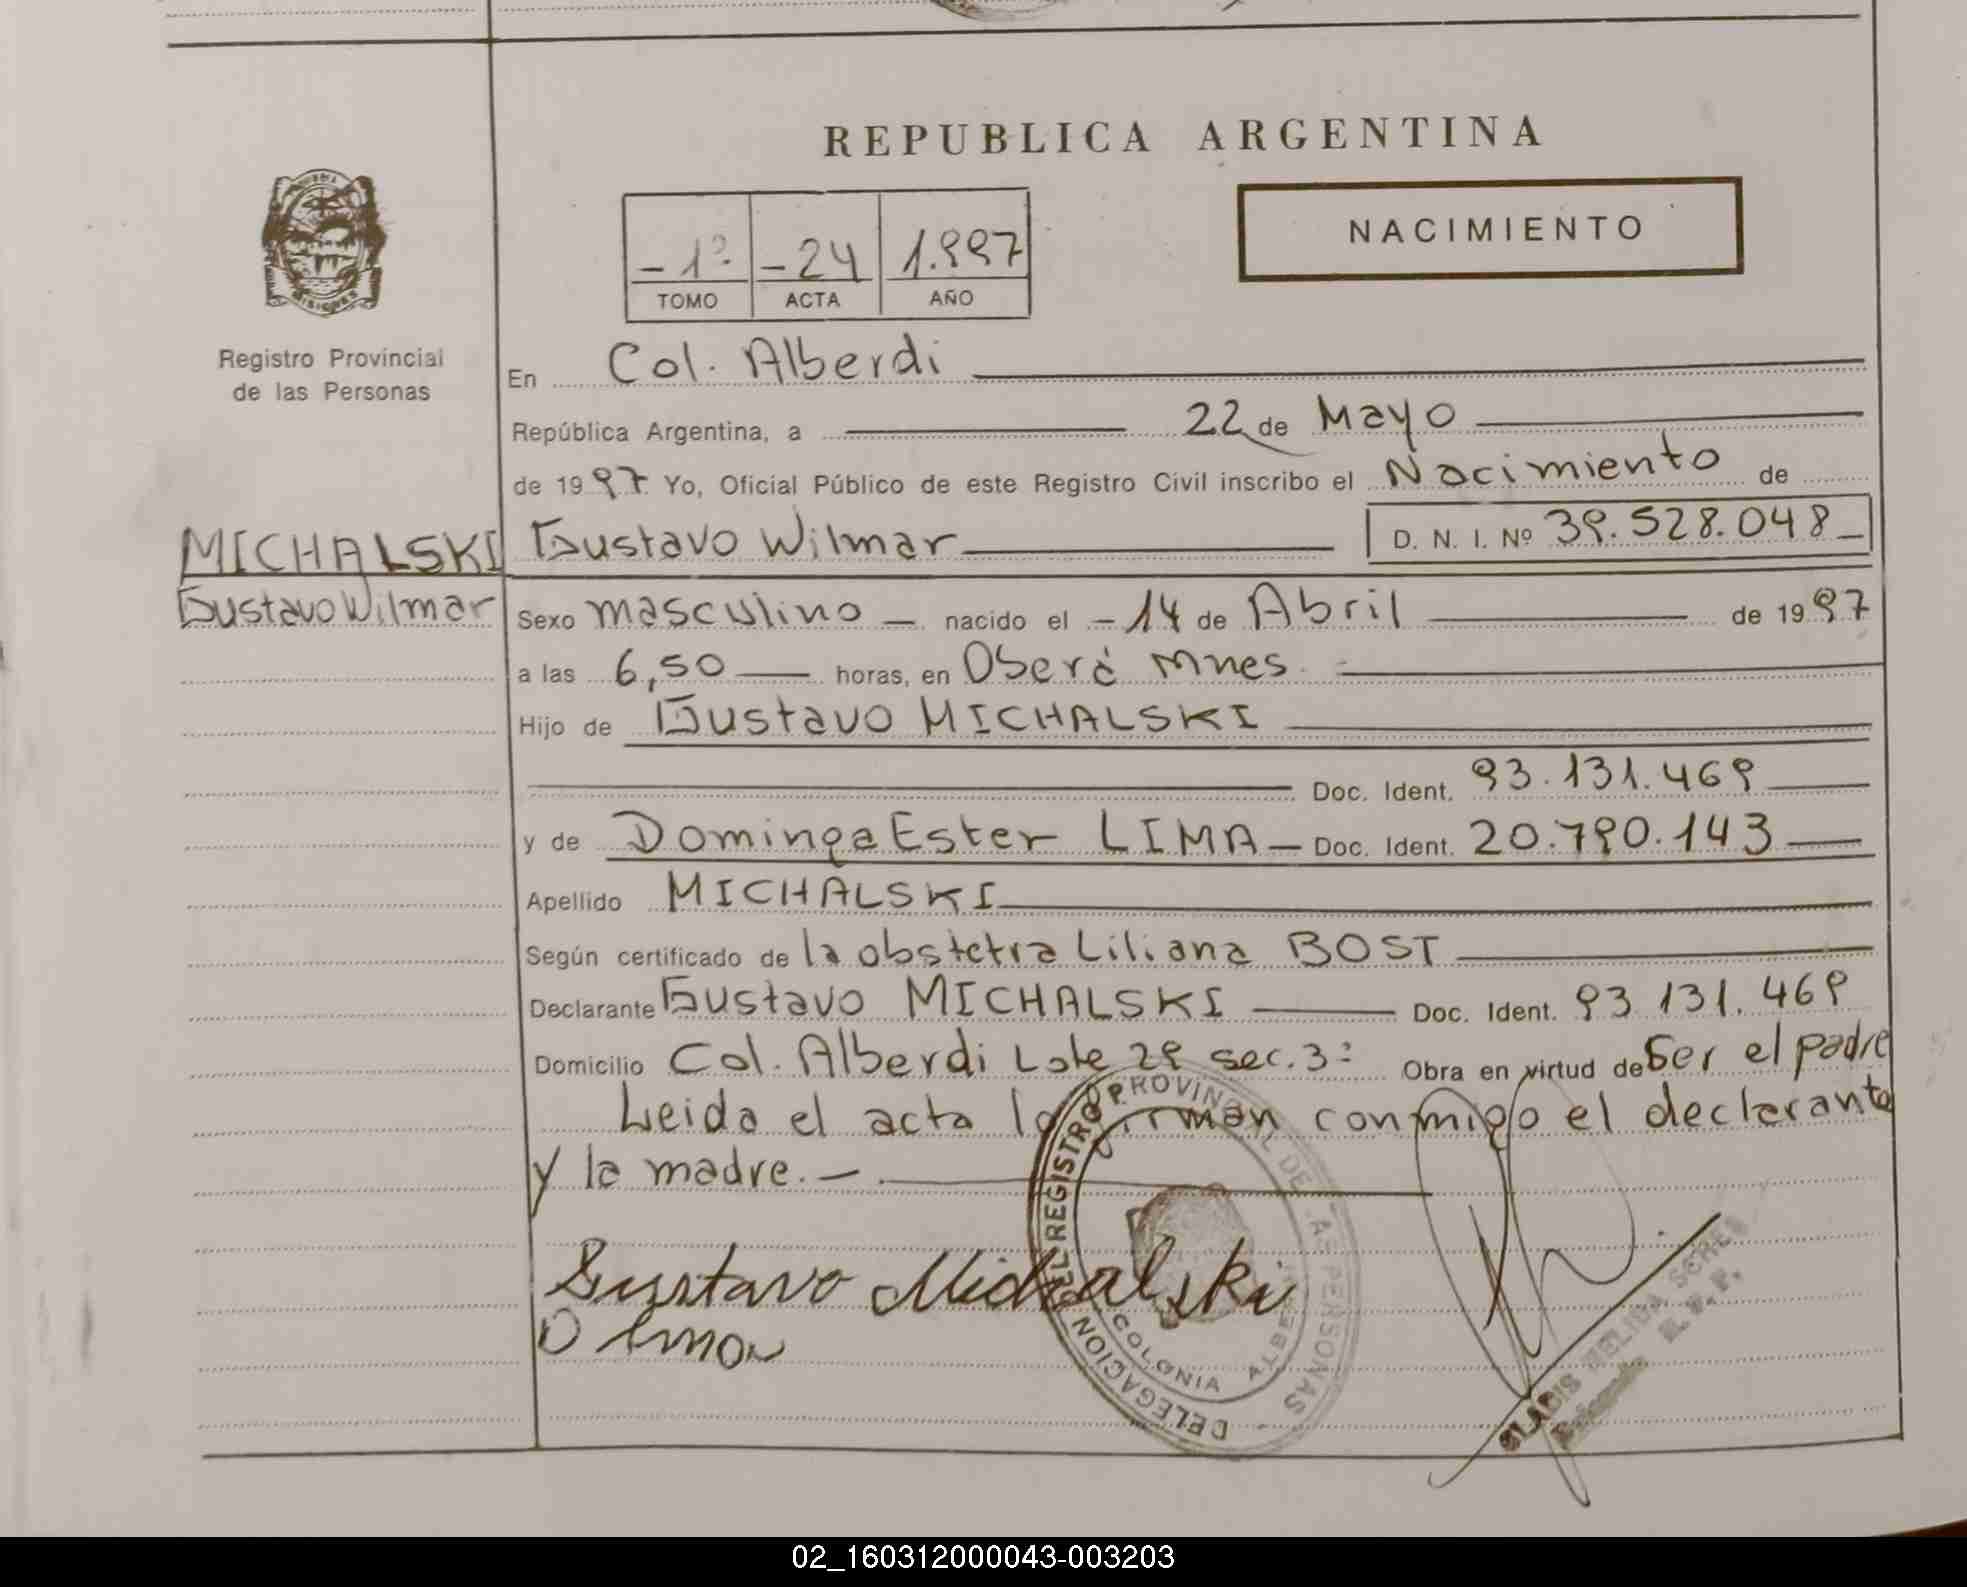 REPUBLICA ARGENTINA
NACIMIENTO
-1º -24 1.997
TOMO ACTA AÑO
MISIONES
Registro Provincial
de las Personas
En Col. Alberdi
República Argentina, a 22 de Mayo
de 1997 Yo, Oficial Público de este Registro Civil inscribo el Nacimiento de
MICHALSKI Gustavo Wilmar D. N. I. Nº 39.528.048
Gustavo Wilmar
Sexo masculino nacido el -14 de Abril de 1997
a las 6,50 horas, en Oberá Mnes.
Hijo de Gustavo MICHALSKI
Doc. Ident. 93.131.469
y de Dominga Ester LIMA Doc. Ident. 20.790.143
Apellido MICHALSKI
Según certificado de la obstetra Liliana BOST
Declarante Gustavo MICHALSKI Doc. Ident. 93 131. 469
Domicilio Col. Alberdi Lote 29 sec. 3ª Obra en virtud de Ser el padre
Leida el acta la firman conmigo el declarante
y la madre.-
Gustavo Michalski
DELEGACION DEL REGISTRO PROVINCIAL DE LAS PERSONAS
COLONIA ALBERDI
GLADIS NELIDA
02_160312000043-003203